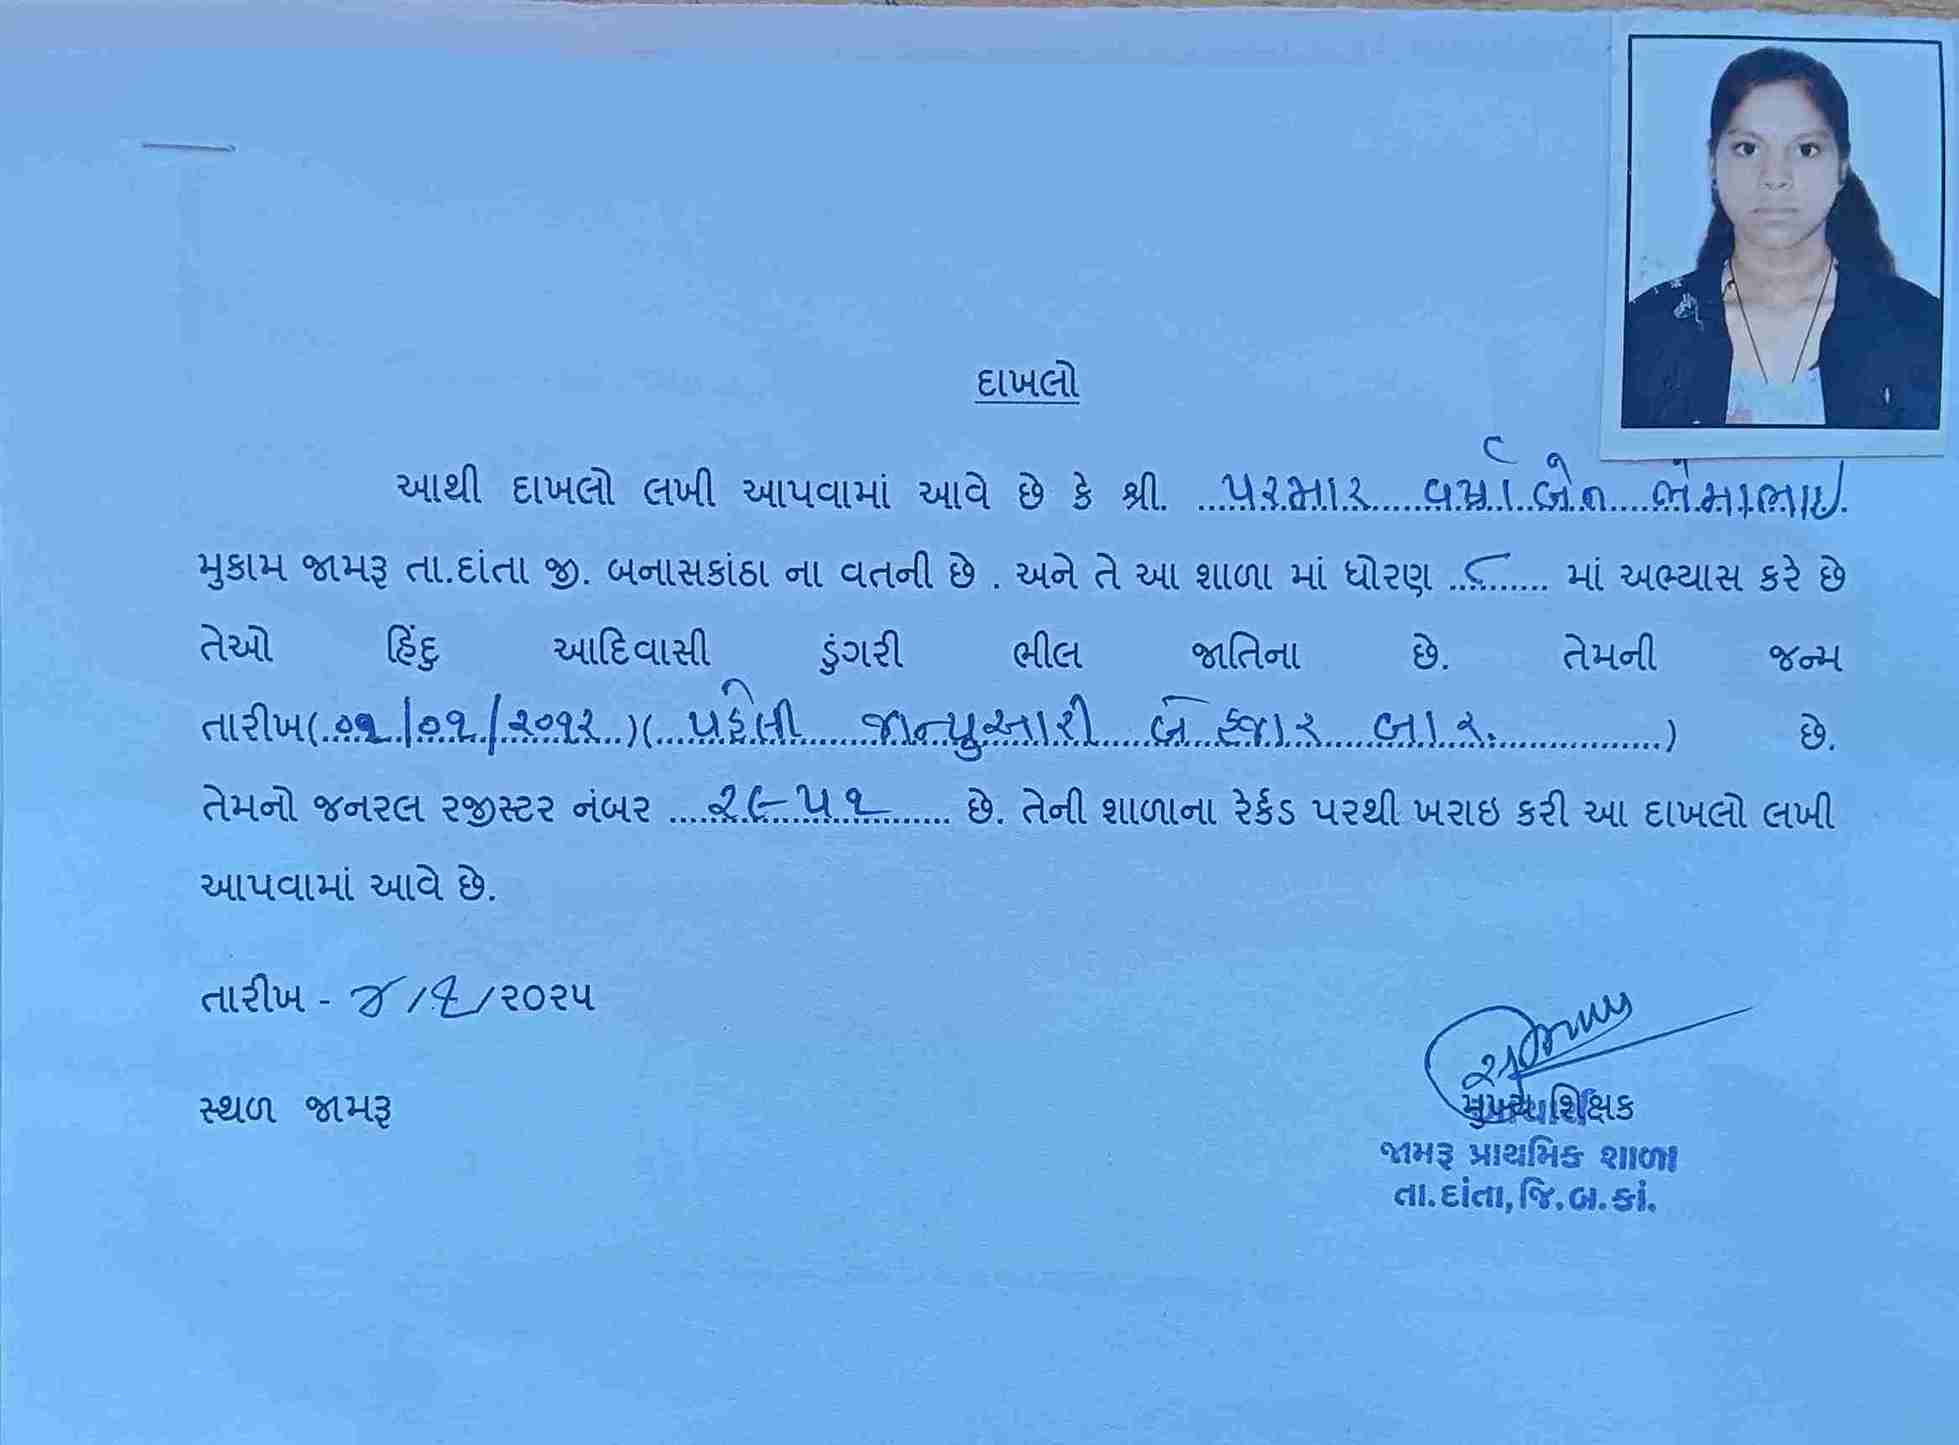 દાખલો
આથી દાખલો લખી આપવામાં આવે છે કે શ્રી. પરમાર વર્ષાબેન ભેમાભાઇ
મુકામ જામરૂ તા.દાંતા જી. બનાસકાંઠા ના વતની છે . અને તે આ શાળા માં ધોરણ ૮ માં અભ્યાસ કરે છે
તેઓ હિંદુ આદિવાસી ડુંગરી ભીલ જાતિના છે. તેમની જન્મ
તારીખ(૦૧/૦૧/૨૦૧૨)(પહેલી જાન્યુઆરી બે હજાર બાર.) છે.
તેમનો જનરલ રજીસ્ટર નંબર ૨૯૫૧ છે. તેની શાળાના રેર્કડ પરથી ખરાઇ કરી આ દાખલો લખી
આપવામાં આવે છે.
તારીખ - ૪/૬/૨૦૨૫
સ્થળ જામરૂ
મુખ્ય શિક્ષક
જામરૂ પ્રાથમિક શાળા
તા.દાંતા,જિ.બ.કાં.